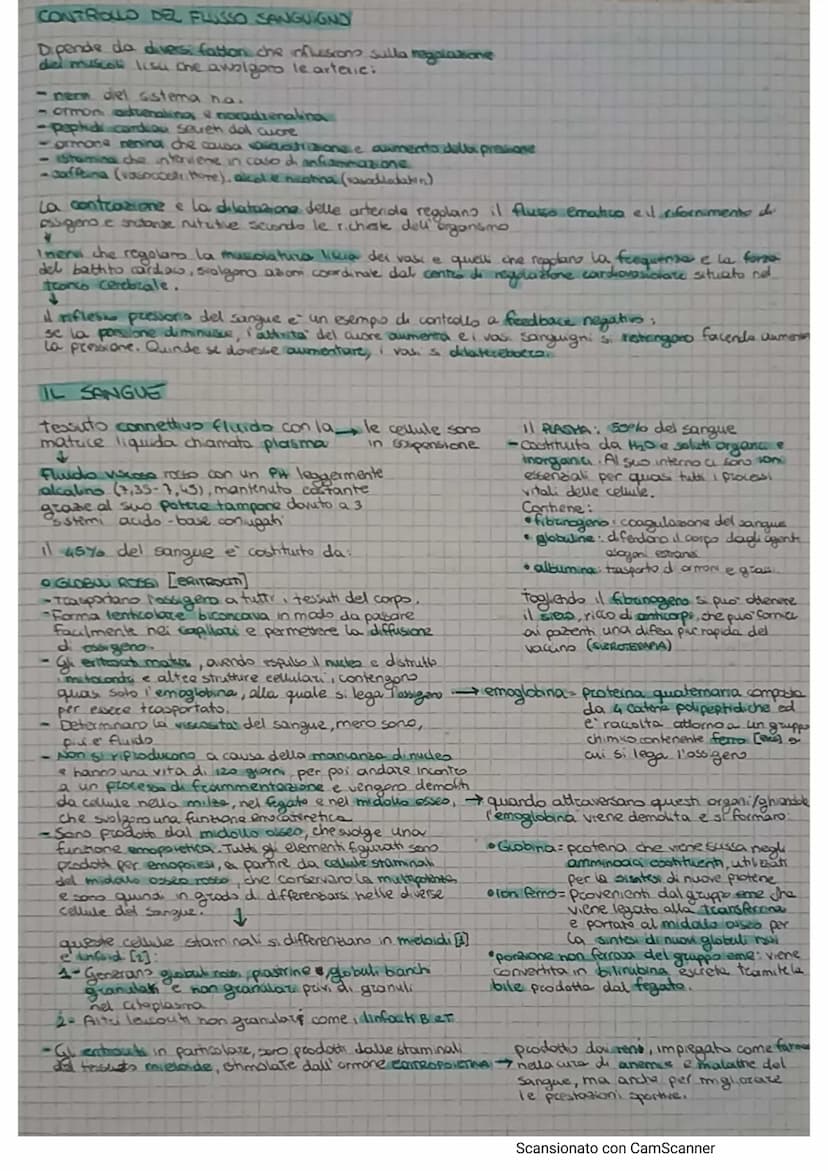 CONTROLLO DEL FLUSSO SANGUIGNO
Dipende da diversi fattori che influiscono sulla regolazione
dei muscoli lisci che avvolgono le arterie:
- nervi del sistema n.a.
- ormoni adrenalina e noradrenalina
- peptidi cardiaci secreti dal cuore
- ormone renina che causa vasocostrizione e aumento della pressione
- istamina che interviene in caso di infiammazione
- caffeina (vasocostrittore), alcol e nicotina (vasodilatatori)
La contrazione e la dilatazione delle arteriole regolano il flusso ematico e il rifornimento di
ossigeno e sostanze nutritive secondo le richieste dell'organismo
I nervi che regolano la muscolatura liscia dei vasi e quelli che regolano la frequenza e la forza
del battito cardiaco, svolgono azioni coordinate dal centro di regolazione cardiovascolare situato nel
tronco cerebrale.
il riflesso pressorio del sangue e' un esempio di controllo a feedback negativo:
se la pressione diminuisce, l'attività del cuore aumenta e i vasi sanguigni si restringono facendo aumentare
la pressione. Quindi se dovesse aumentare, i vasi si dilaterebbero.
IL SANGUE
tessuto connettivo fluido con la → le cellule sono
matrice liquida chiamata plasma in sospensione
↓
Fluido viscoso rosso con un PH leggermente
alcalino (7,35-7,45), mantenuto costante
grazie al suo potere tampone dovuto a 3
sistemi acido-base coniugati
il 45% del sangue e' costituito da:
o GLOBULI ROSSI [ERITROCITI]
- Trasportano l'ossigeno a tutti i tessuti del corpo.
- Forma lenticolare biconcava in modo da passare
facilmente nei capillari e permettere la diffusione
di ossigeno.
- Gli eritrociti maturi, avendo espulso il nucleo e distrutto
i mitocondri e altre strutture cellulari, contengono
quasi solo l'emoglobina, alla quale si lega l'ossigeno
per essere trasportato.
- Determinano la viscosita' del sangue, meno sono,
più e' fluido
- Non si riproducono a causa della mancanza di nucleo
e hanno una vita di 120 giorni, per poi andare incontro
a un processo di frammentazione e vengono demoliti
da cellule nella milza, nel fegato e nel midollo osseo,
che svolgono una funzione emocateretica
- Sono prodotti dal midollo osseo, che svolge una
funzione emopoietica. Tutti gli elementi figurati sono
prodotti per emopoiesi, a partire da cellule staminali
del midollo osseo rosso, che conservano la multipotenza
e sono quindi in grado di differenziarsi nelle diverse
cellule del sangue. ↓
queste cellule staminali si differenziano in mieloidi [1]
e linfoidi [2]:
1- Generano globuli rossi, piastrine e globuli bianchi
granulari e non granulari privi di granuli
nel citoplasma
2- Altri leucociti non granulari come i linfociti B e T
- Gli eritrociti in particolare, sono prodotti dalle staminali
del tessuto mieloide, stimolate dall'ormone ERITROPOIETINA →
il PLASMA: 50% del sangue
- Costituito da H₂O e soluti organici e
inorganici. Al suo interno ci sono ioni
essenziali per quasi tutti i processi
vitali delle cellule.
Contiene:
• fibrinogeno: coagulazione del sangue
• globuline: difendono il corpo dagli agenti
patogeni estranei
• albumina: trasporto di ormoni e grassi
Togliendo il fibrinogeno si può ottenere
il siero, ricco di anticorpi, che può fornire
ai pazienti una difesa più rapida del
vaccino (SIEROTERAPIA)
→ emoglobina = proteina quaternaria composta
da 4 catene polipeptidiche ed
e' raccolta attorno a un gruppo
chimico contenente ferro [eme] a
cui si lega l'ossigeno
→ quando attraversano questi organi/ghiandole
l'emoglobina viene demolita e si formano:
• Globina = proteina che viene scissa negli
amminoacidi costituenti, utilizzati
per la sintesi di nuove proteine
• Ioni ferro = provenienti dal gruppo eme che
viene legato alla transferrina
e portato al midollo osseo per
la sintesi di nuovi globuli rossi
• porzione non ferrosa del gruppo eme: viene
convertita in bilirubina escreta tramite la
bile prodotta dal fegato.
prodotto dai reni, impiegato come farmaco
nella cura di anemie e malattie del
sangue, ma anche per migliorare
le prestazioni sportive.
Scansionato con CamScanner